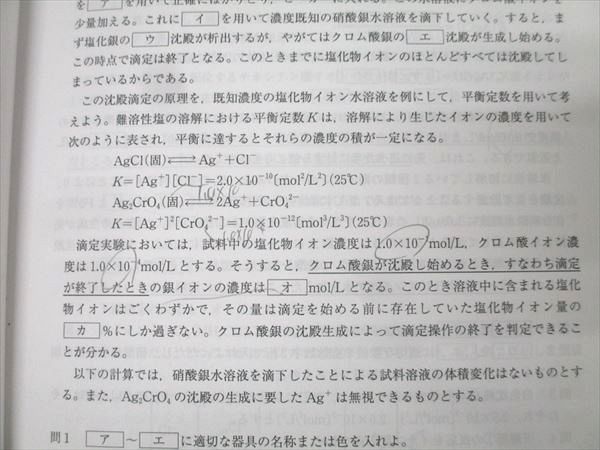 を ア を用いて正確にはかりとり，
少量加える。これに イ を用いて濃度既知の硝酸銀水溶液を滴下していく。すると，ま
ず塩化銀の ウ 沈殿が析出するが，やがてはクロム酸銀の エ 沈殿が生成し始める。
この時点で滴定は終了となる。このときまでに塩化物イオンのほとんどすべては沈殿してし
まっているからである。
この沈殿滴定の原理を，既知濃度の塩化物イオン水溶液を例にして，平衡定数を用いて考
えよう。難溶性塩の溶解における平衡定数Kは，溶解により生じたイオンの濃度を用いて
次のように表され，平衡に達するとそれらの濃度の積が一定になる。
AgCl(固)⇄Ag⁺+Cl⁻
K=[Ag⁺][Cl⁻]=2.0×10⁻¹⁰[mol²/L²](25℃)
Ag₂CrO₄(固)⇄2Ag⁺+CrO₄²⁻
K=[Ag⁺]²[CrO₄²⁻]=1.0×10⁻¹²[mol³/L³](25℃)
滴定実験においては，試料中の塩化物イオン濃度は1.0×10 mol/L，クロム酸イオン濃
度は1.0×10⁻⁴mol/Lとする。そうすると，クロム酸銀が沈殿し始めるとき，すなわち滴定
が終了したときの銀イオンの濃度は オ mol/Lとなる。このとき溶液中に含まれる塩化
物イオンはごくわずかで，その量は滴定を始める前に存在していた塩化物イオン量の
カ %にしか過ぎない。クロム酸銀の沈殿生成によって滴定操作の終了を判定できるこ
とが分かる。
以下の計算では，硝酸銀水溶液を滴下したことによる試料溶液の体積変化はないものとす
る。また，Ag₂CrO₄の沈殿の生成に要したAg⁺は無視できるものとする。
問1 ア ～ エ に適切な器具の名称または色を入れよ。